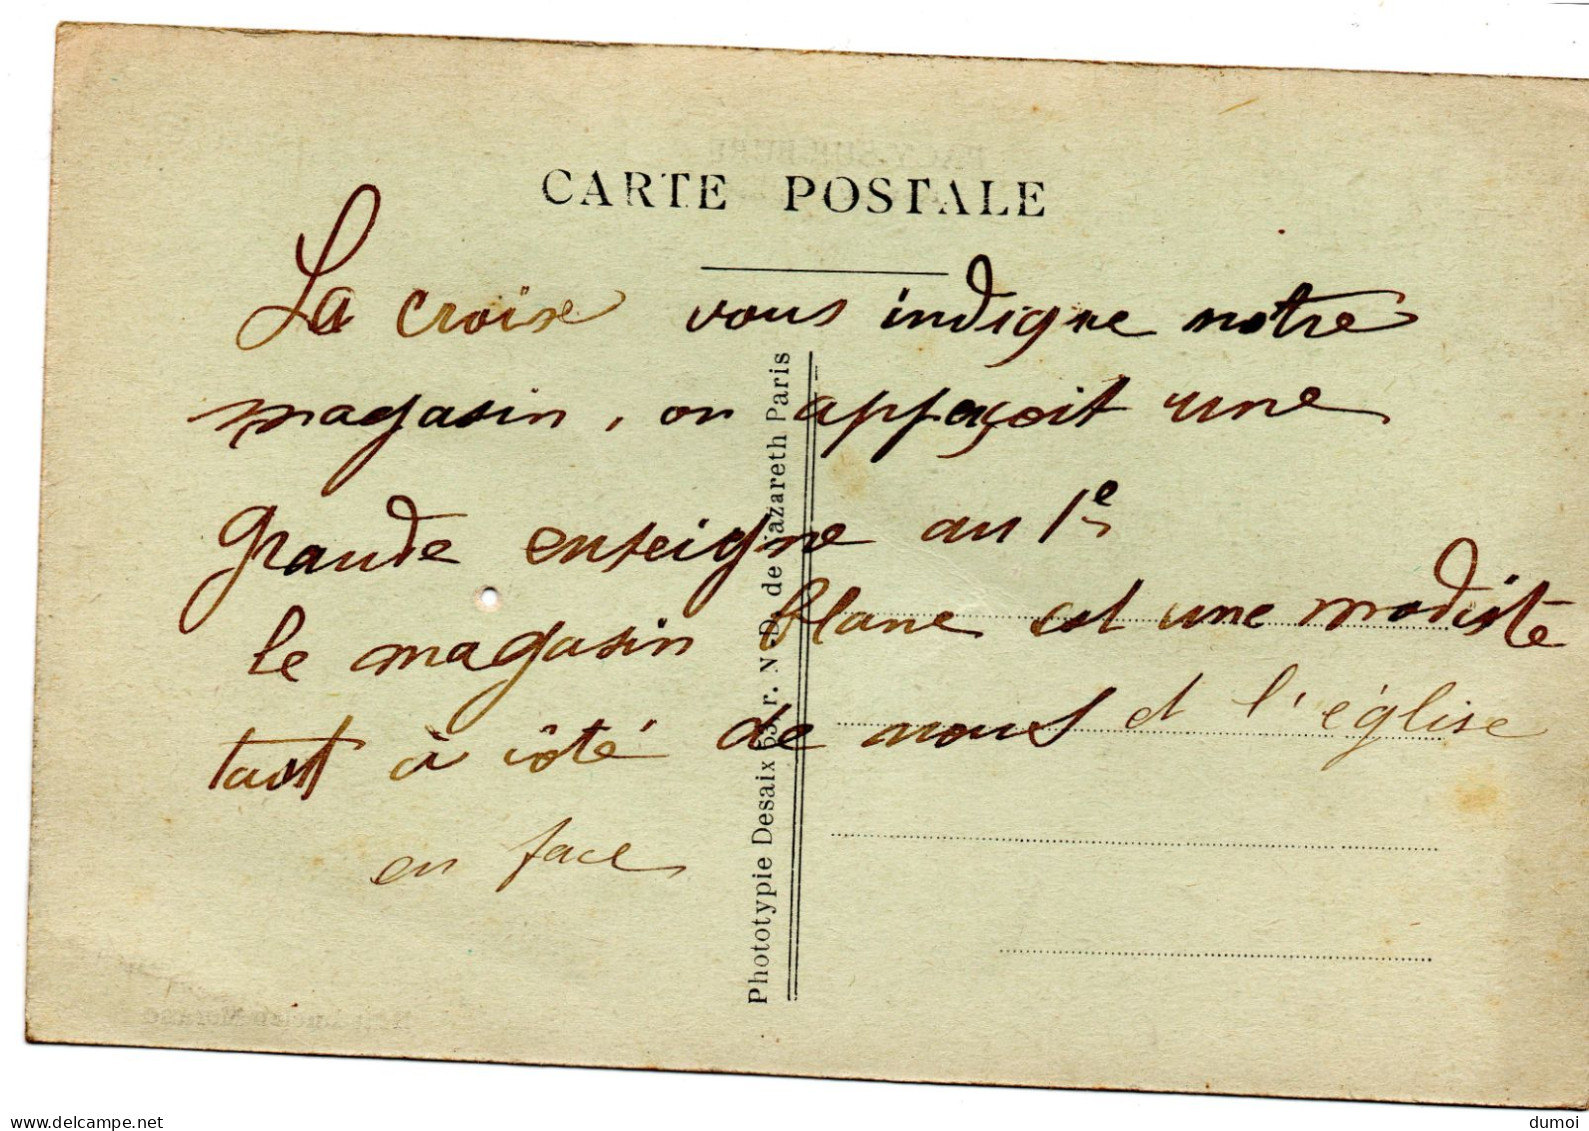 CARTE POSTALE
La croix vous indique notre
magasin, on apperçoit une
grande enseigne au 1e
le magasin blanc est une modiste
tout à côté de nous et l'église
en face
Phototypie Desaix 63, r. N.-D. de Nazareth Paris
www.delcampe.net
dumoi